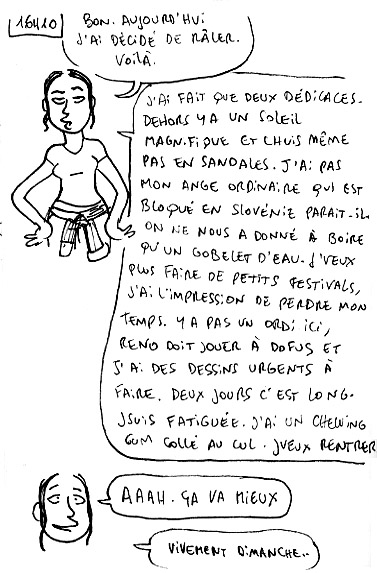 16H10
BON. AUJOURD'HUI
J'AI DÉCIDÉ DE RÂLER.
VOILÀ.
J'AI FAIT QUE DEUX DÉDICACES.
DEHORS Y A UN SOLEIL
MAGNIFIQUE ET CHUIS MÊME
PAS EN SANDALES. J'AI PAS
MON ANGE ORDINAIRE QUI EST
BLOQUÉ EN SLOVÉNIE PARAIT-IL
ON NE NOUS A DONNÉ À BOIRE
QU'UN GOBELET D'EAU. J'VEUX
PLUS FAIRE DE PETITS FESTIVALS,
J'AI L'IMPRESSION DE PERDRE MON
TEMPS. Y A PAS UN ORDI ICI,
RENO DOIT JOUER À DOFUS ET
J'AI DES DESSINS URGENTS À
FAIRE. DEUX JOURS C'EST LONG.
JSUIS FATIGUÉE. J'AI UN CHEWING
GUM COLLÉ AU CUL. JVEUX RENTRER
AAAH. ÇA VA MIEUX
VIVEMENT DIMANCHE..